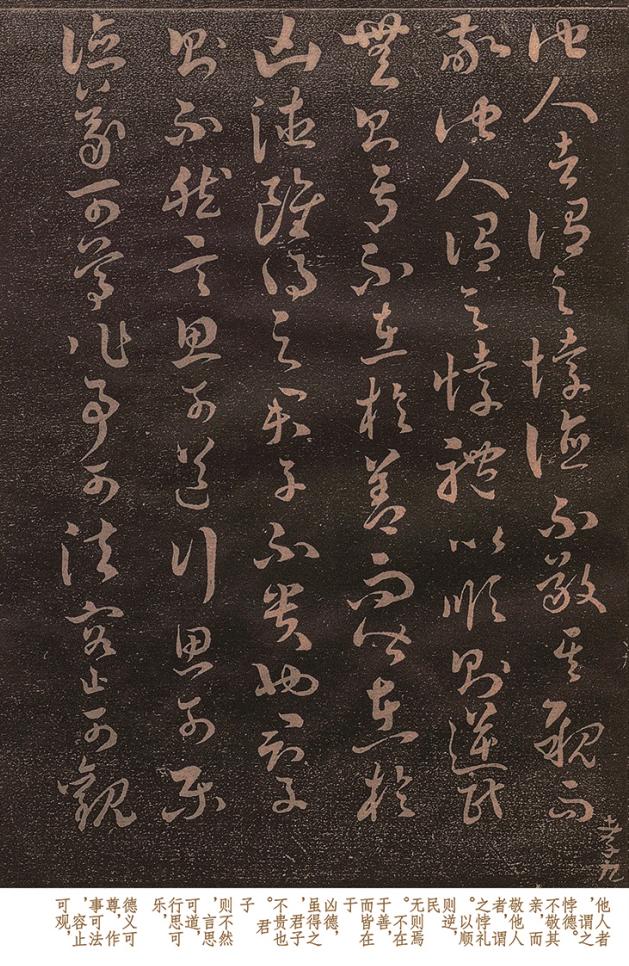 他人者謂之悖德不敬其親而
敬他人謂之悖禮以順則逆民
無則焉不在於善而皆在於
凶德雖得之君子不貴也君子
則不然言思可道行思可樂
德義可尊作事可法容止可觀
孝九
他人者
，谓之
悖德。
不敬其
亲，而
敬他人
者，谓
之悖礼
。以顺
则逆，
民
无则焉
。不在
于善，
而皆在
于
凶德，
虽得之
，君子
不贵也
。君
子
则不然
，言思
可道，
行思可
乐，
德义可
尊，作
事可法
，容止
可观，